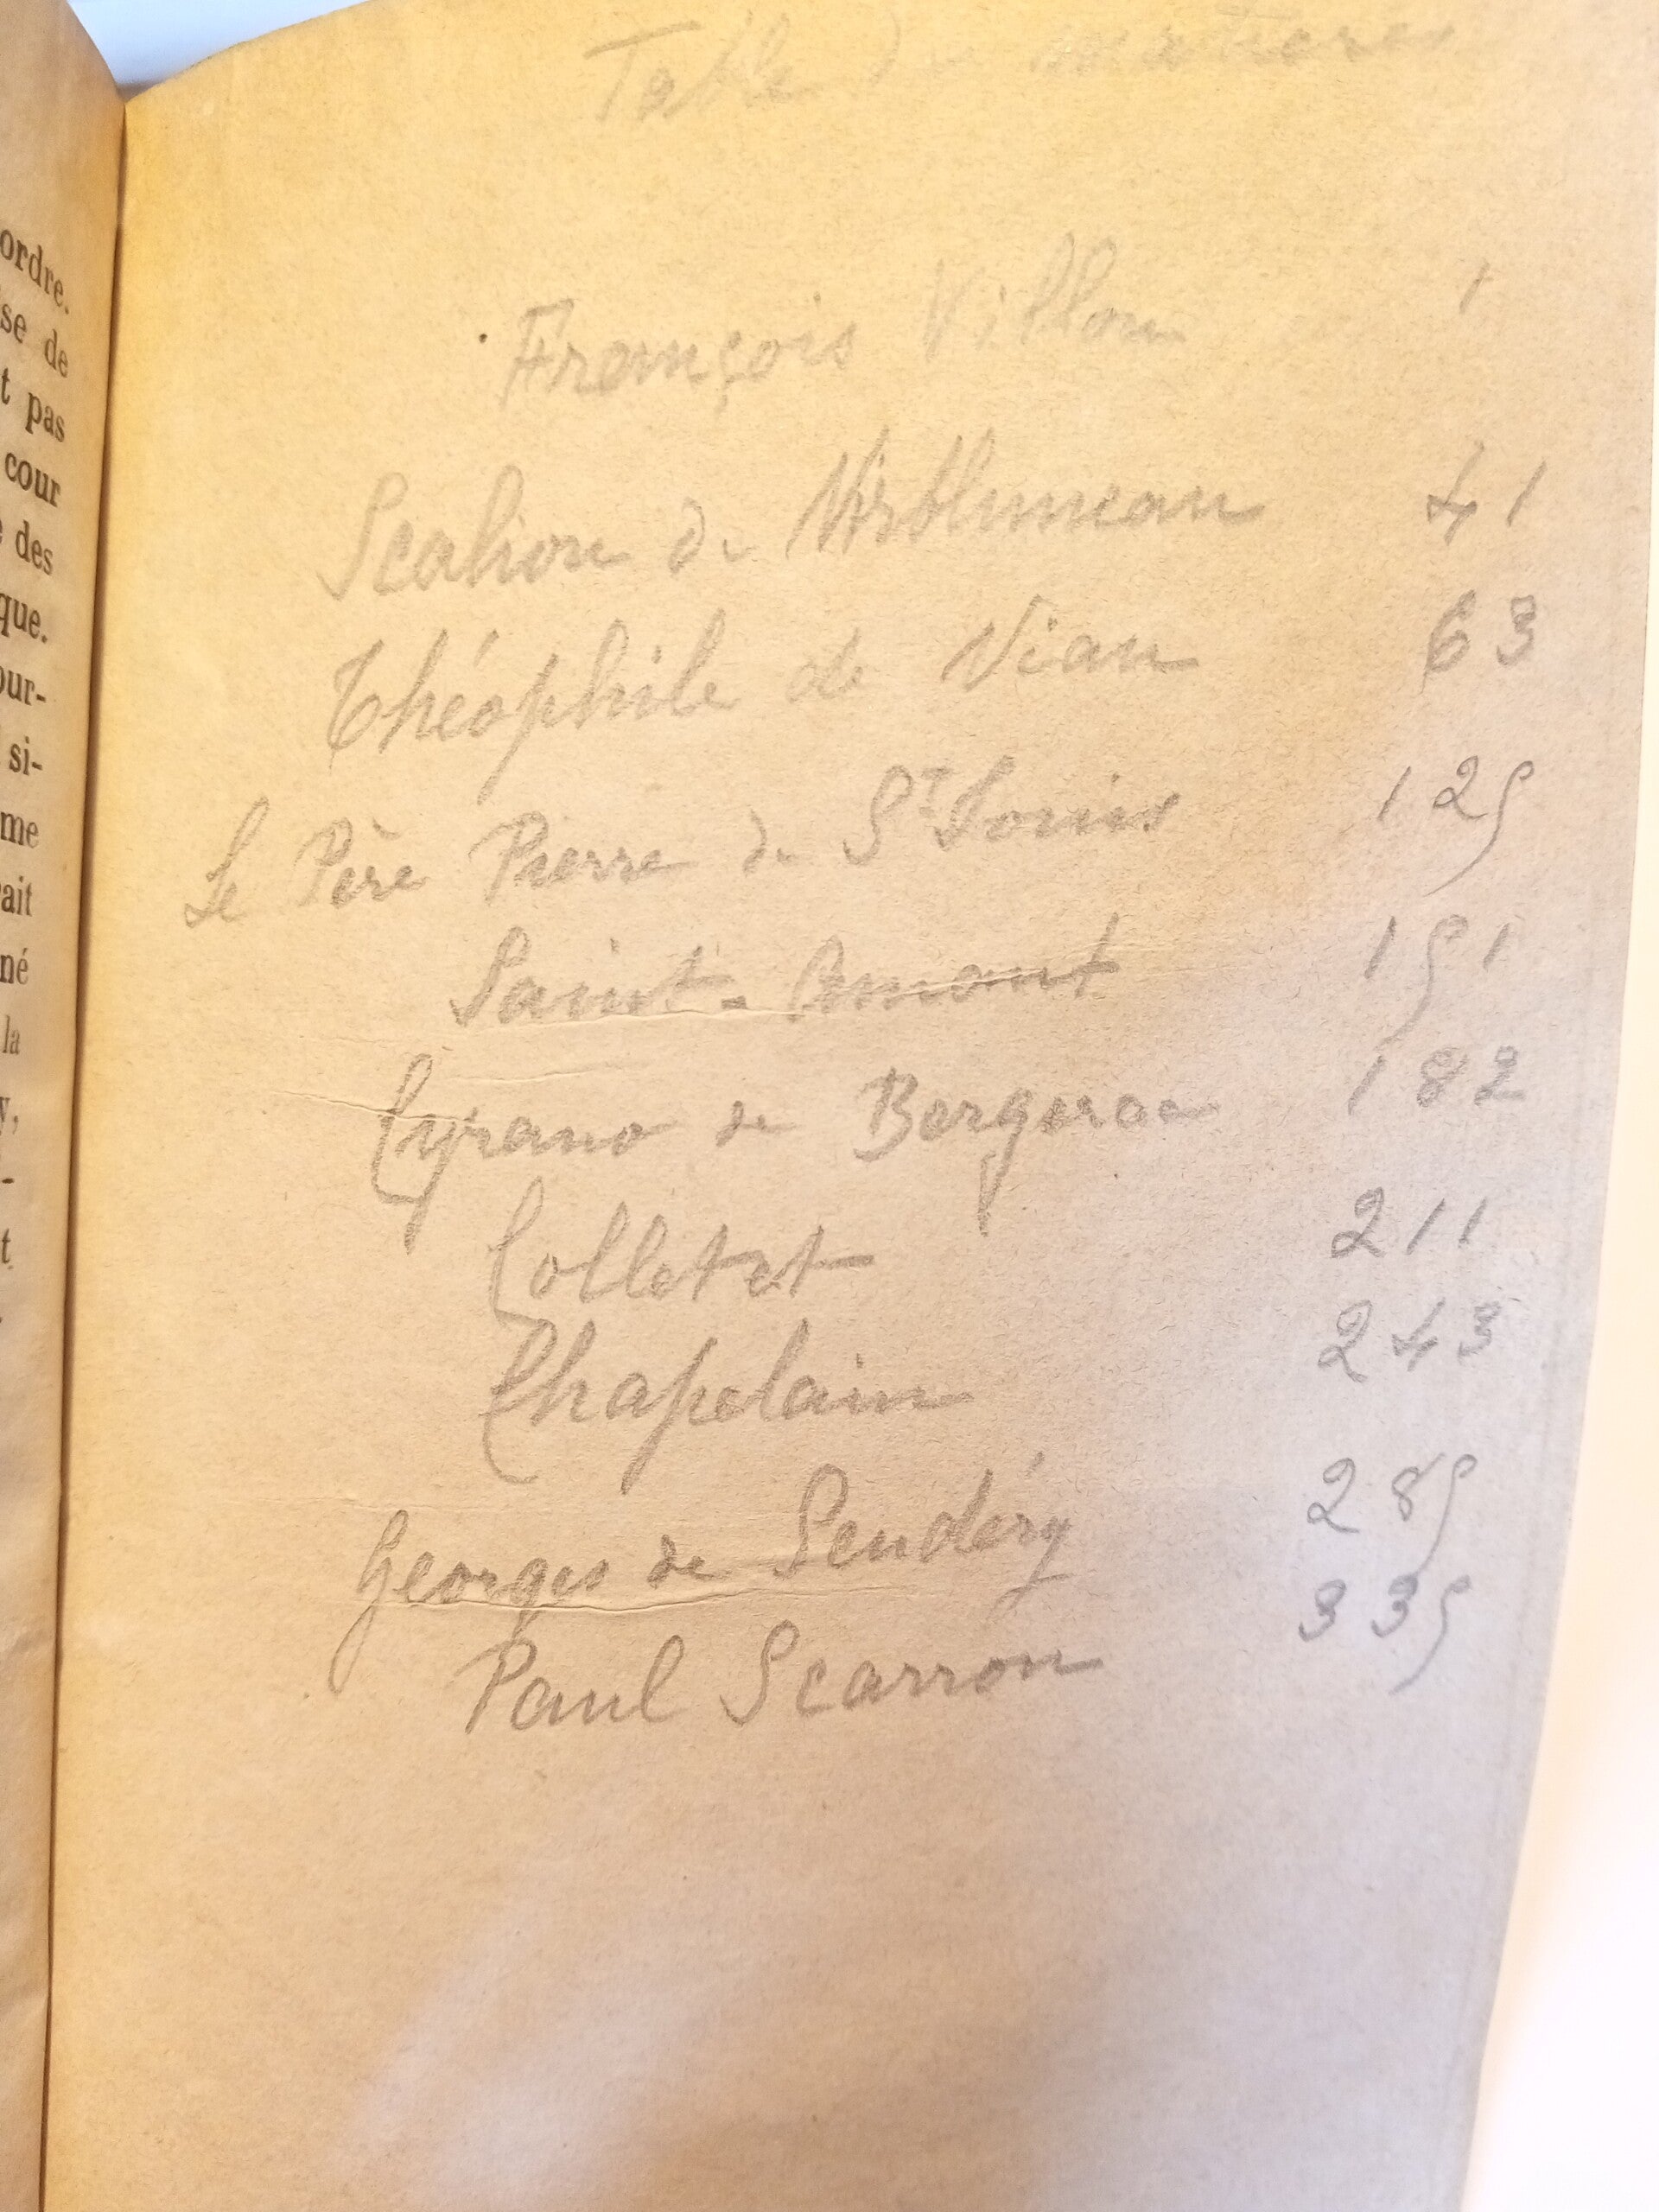 ordre.
se de
t pas
cour
des
que.
our-
si-
me
ait
né
la
y,
-
t
Table de matières
François Villon 1
Scalion de Virbluneau 41
Théophile de Viau 63
Le Père Pierre de St Louis 125
Saint-Amant 151
Cyrano de Bergerac 182
Colletet 211
Chapelain 243
Georges de Scudéry 285
Paul Scarron 335